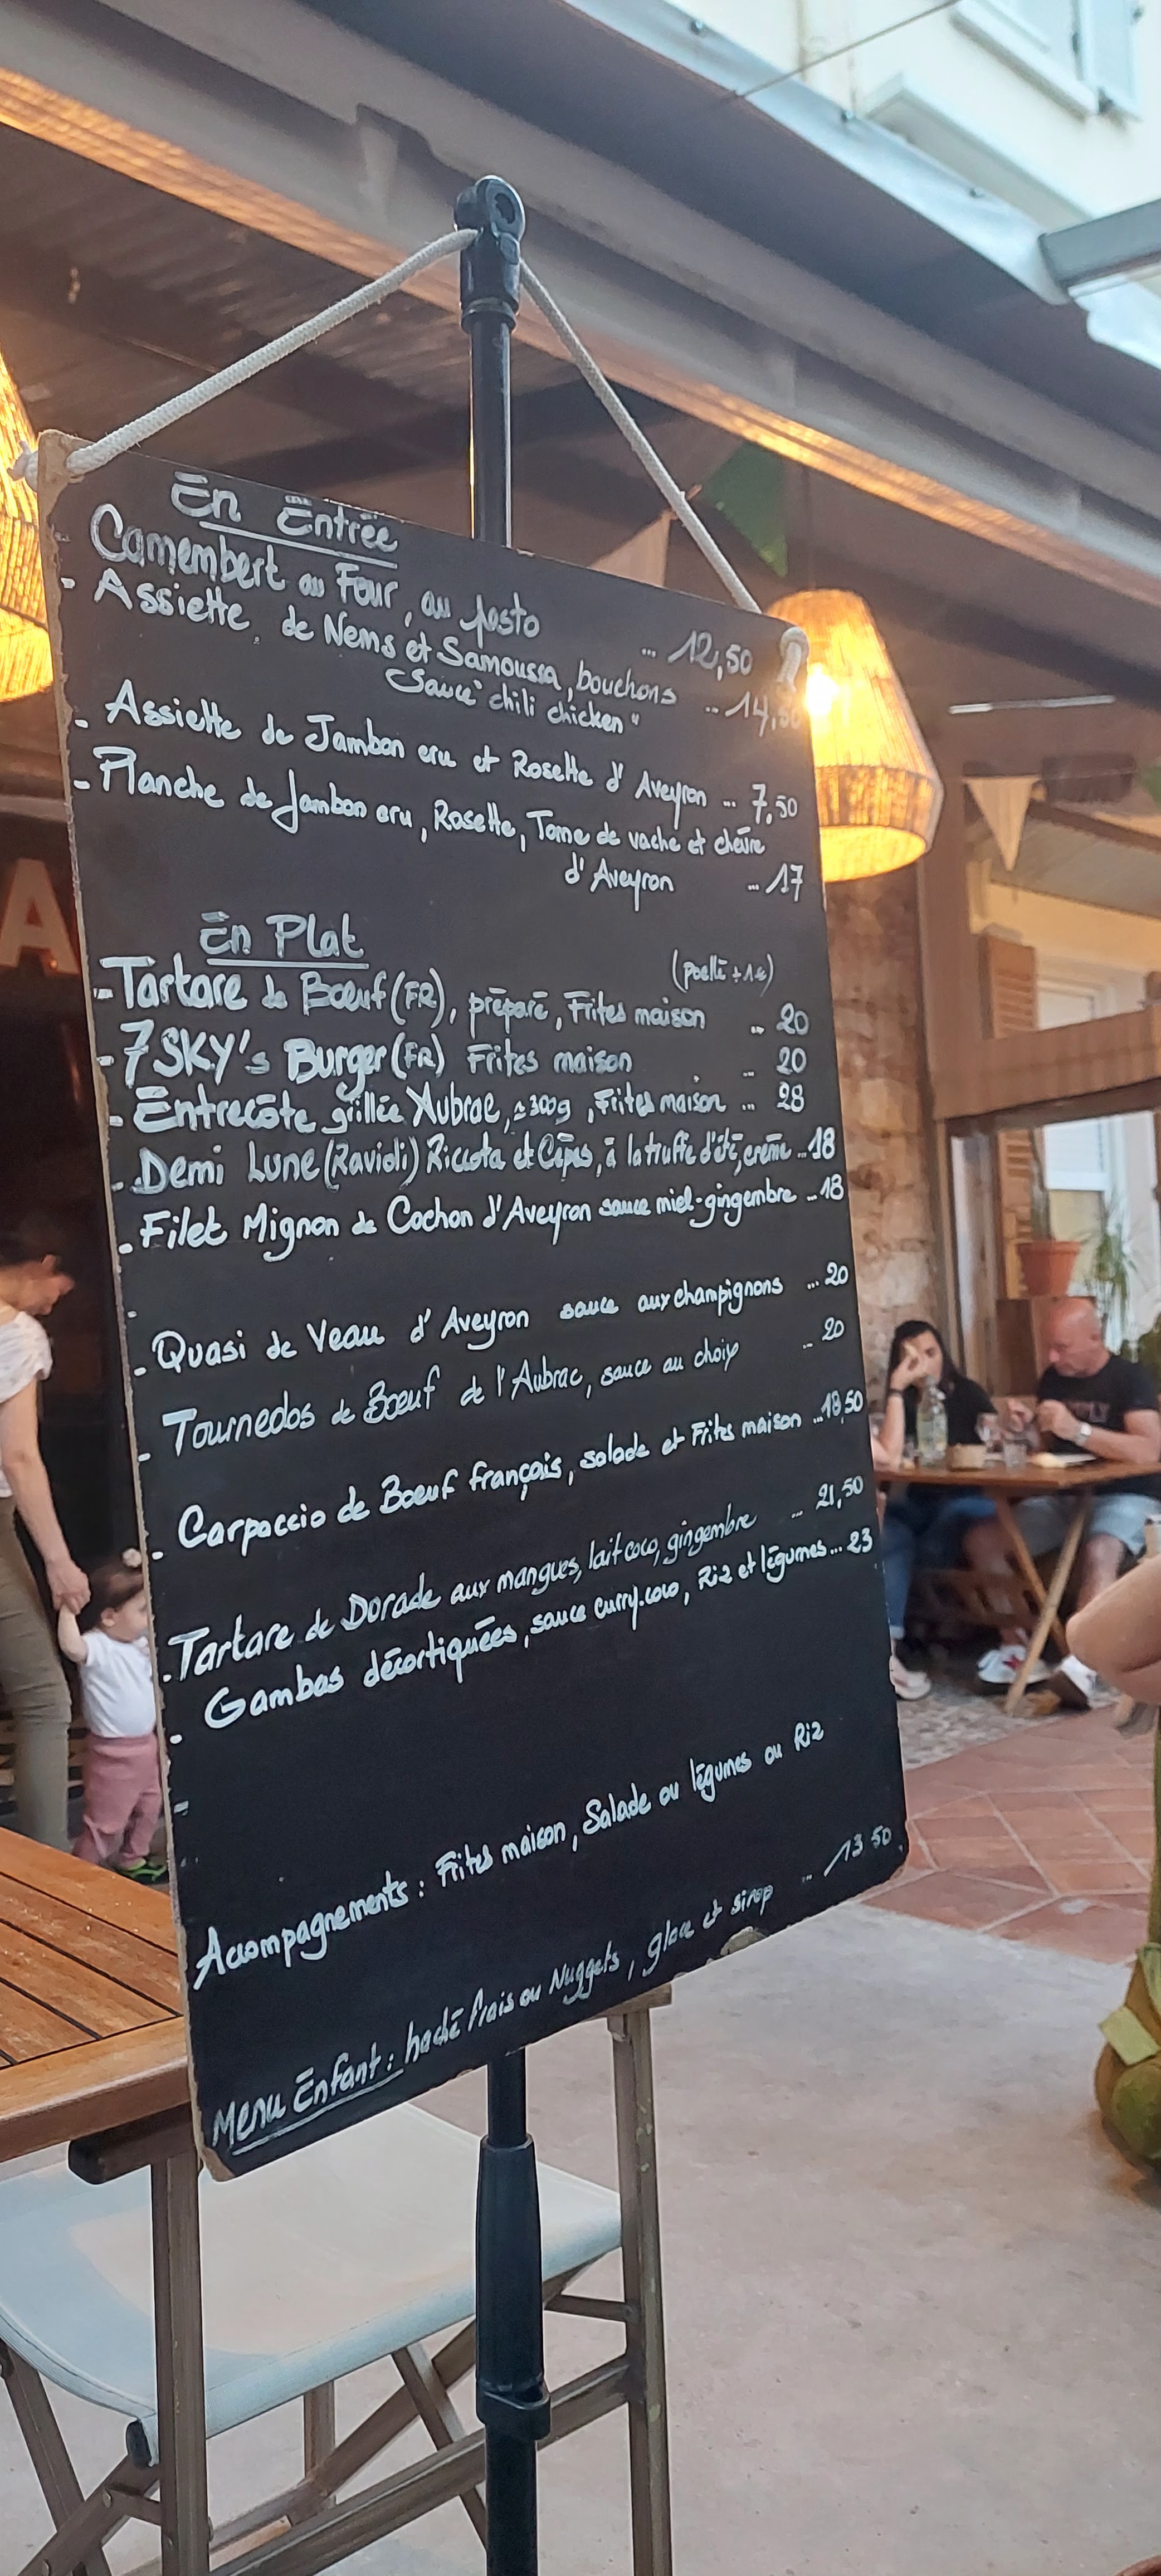 En Entrée
- Camembert au Four, au pesto ... 12,50
- Assiette de Nems et Samoussa, bouchons ... 14,50
sauce "chili chicken"
- Assiette de Jambon cru et Rosette d'Aveyron ... 7,50
- Planche de Jambon cru, Rosette, Tome de vache et chèvre
d'Aveyron ... 17
En Plat
(poellé + 1€)
- Tartare de Bœuf (FR), préparé, Frites maison ... 20
- 7 SKY's Burger (FR) Frites maison ... 20
- Entrecôte grillée Aubrac, ≃ 300g, Frites maison ... 28
- Demi Lune (Ravioli) Riccota et Cèpes, à la truffe d'été, crème ... 18
- Filet Mignon de Cochon d'Aveyron sauce miel-gingembre ... 18
- Quasi de Veau d'Aveyron sauce aux champignons ... 20
- Tournedos de Bœuf de l'Aubrac, sauce au choix ... 20
- Carpaccio de Bœuf français, salade et Frites maison ... 18,50
- Tartare de Dorade aux mangues, lait coco, gingembre ... 21,50
- Gambas décortiquées, sauce curry-coco, Riz et légumes ... 23
Accompagnements : Frites maison, Salade ou légumes ou Riz
Menu Enfant : haché frais ou Nuggets, glace et sirop ... 13.50
A